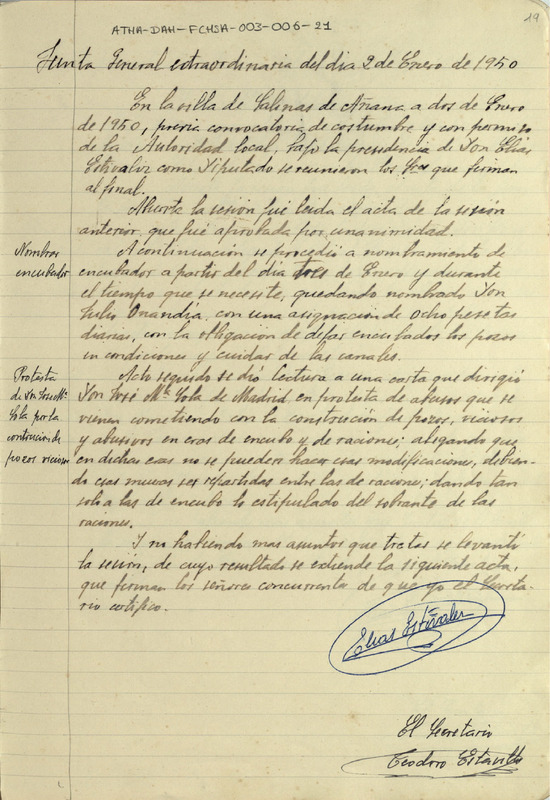 19
ATHA-DAH-FCHSA-003-006-21
Junta General extraordinaria del dia 2 de Enero de 1950
En la villa de Salinas de Añana a dos de Enero
de 1950, previa convocatoria de costumbre y con permiso
de la Autoridad local, bajo la presidencia de Don Elias
Estivalez como Diputado se reunieron los Sres que firman
al final.
Abierta la sesión fué leida el acta de la sesión
anterior, que fué aprobada por unanimidad.
Nombrar
encubador
A continuación se procedió a nombramiento de
encubador a partir del dia tres de Enero y durante
el tiempo que se necesite, quedando nombrado Don
Julio Onandia, con una asignación de ocho pesetas
diarias, con la obligación de dejar encubados los pozos
en condiciones y cuidar de las canales.
Protesta
de Don Jose Mª
Sola por la
contrucion de
pozos viciosos
Acto seguido se dió lectura a una carta que dirigió
Don José Mª Sola de Madrid en protesta de abusos que se
vienen cometiendo con la construcción de pozos, viciosos
y abusivos en eras de encubo y de raciones; alegando que
en dichas eras no se pueden hacer esas modificaciones, debien-
do esas mueras ser repartidas entre las de raciones; dando tan
solo a las de encubo lo estipulado del sobrante de las
raciones.
Y no habiendo mas asuntos que tratar se levantó
la sesión, de cuyo resultado se extiende la siguiente acta,
que firman los señores concurrentes de que yo el Secreta-
rio certifico.
Elias Estivalez
El Secretario
Teodoro Estavillo